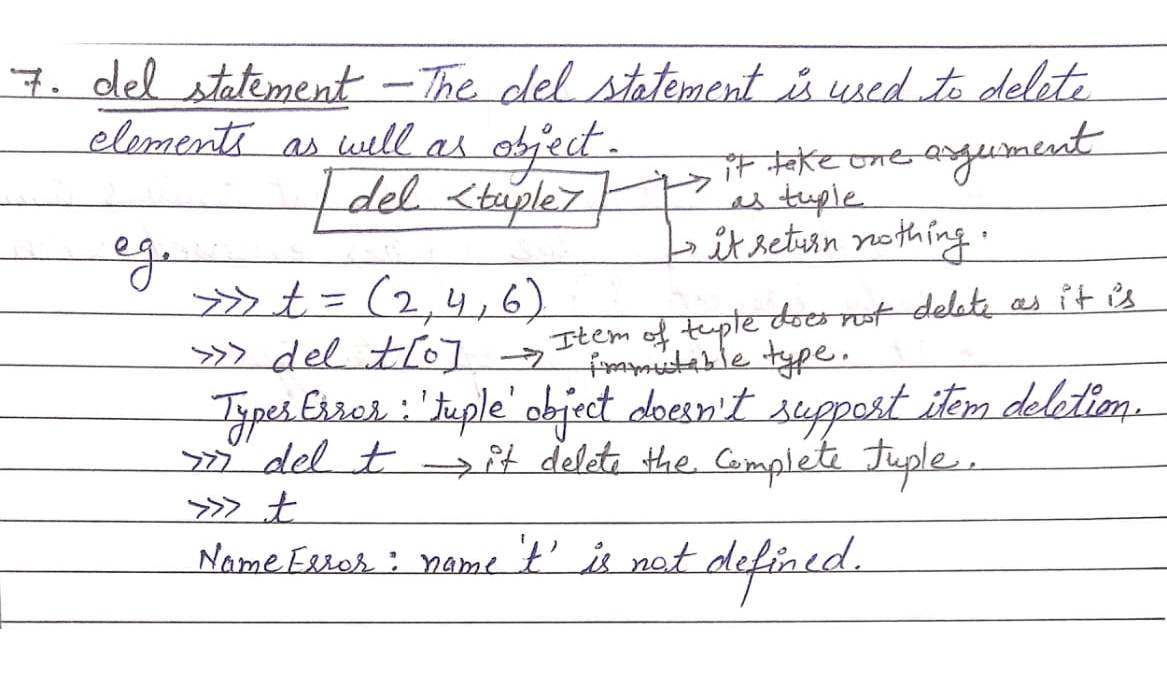 7. del statement - The del statement is used to delete
elements as well as object.
del <tuple> → it take one argument
as tuple
↳ it return nothing.
eg.
>>> t = (2, 4, 6)
>>> del t[0] → Item of tuple does not delete as it is
immutable type.
TypesError : 'tuple' object doesn't support item deletion.
>>> del t → it delete the Complete tuple.
>>> t
NameError : name 't' is not defined.